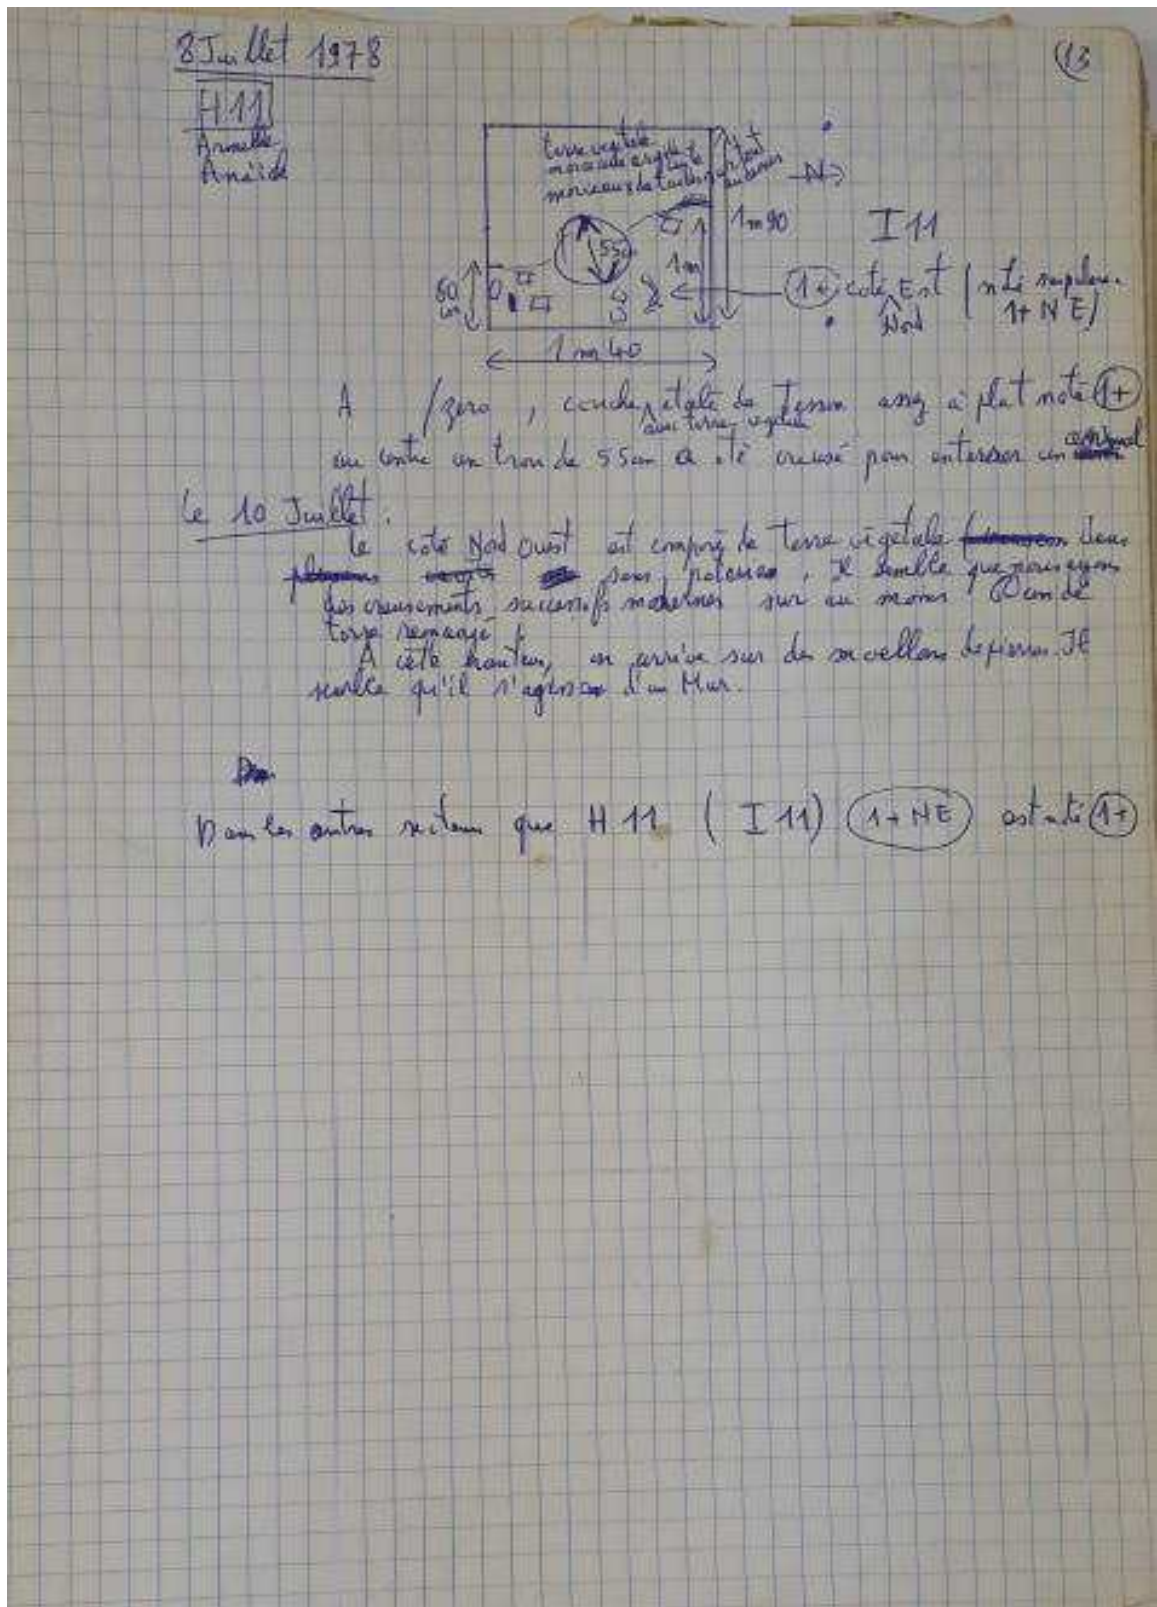 8 Juillet 1978
13
H11
Armelle
Anaïck
terre végétale
morceaux
morceaux de tuiles
tout
N
1m90
I 11
55cm
1m
60
cm
1+ coté Est (noté
Nord
1+ NE)
1m40
A /zéro, couche étalée de Tessons assez à plat noté 1+
avec terre végétale
au centre un trou de 55cm a été creusé pour enterrer un animal
Le 10 Juillet.
le coté Nord Ouest est composé de terre végétale
sans poteries. Il semble que nous ayons
des creusements successifs modernes sur au moins de
terre remangé.
A cette hauteur, on arrive sur des moellons de pierres. Il
semble qu'il s'agisse d'un Mur.
Dans les autres secteurs que H 11 (I 11) 1+ NE est noté 1+